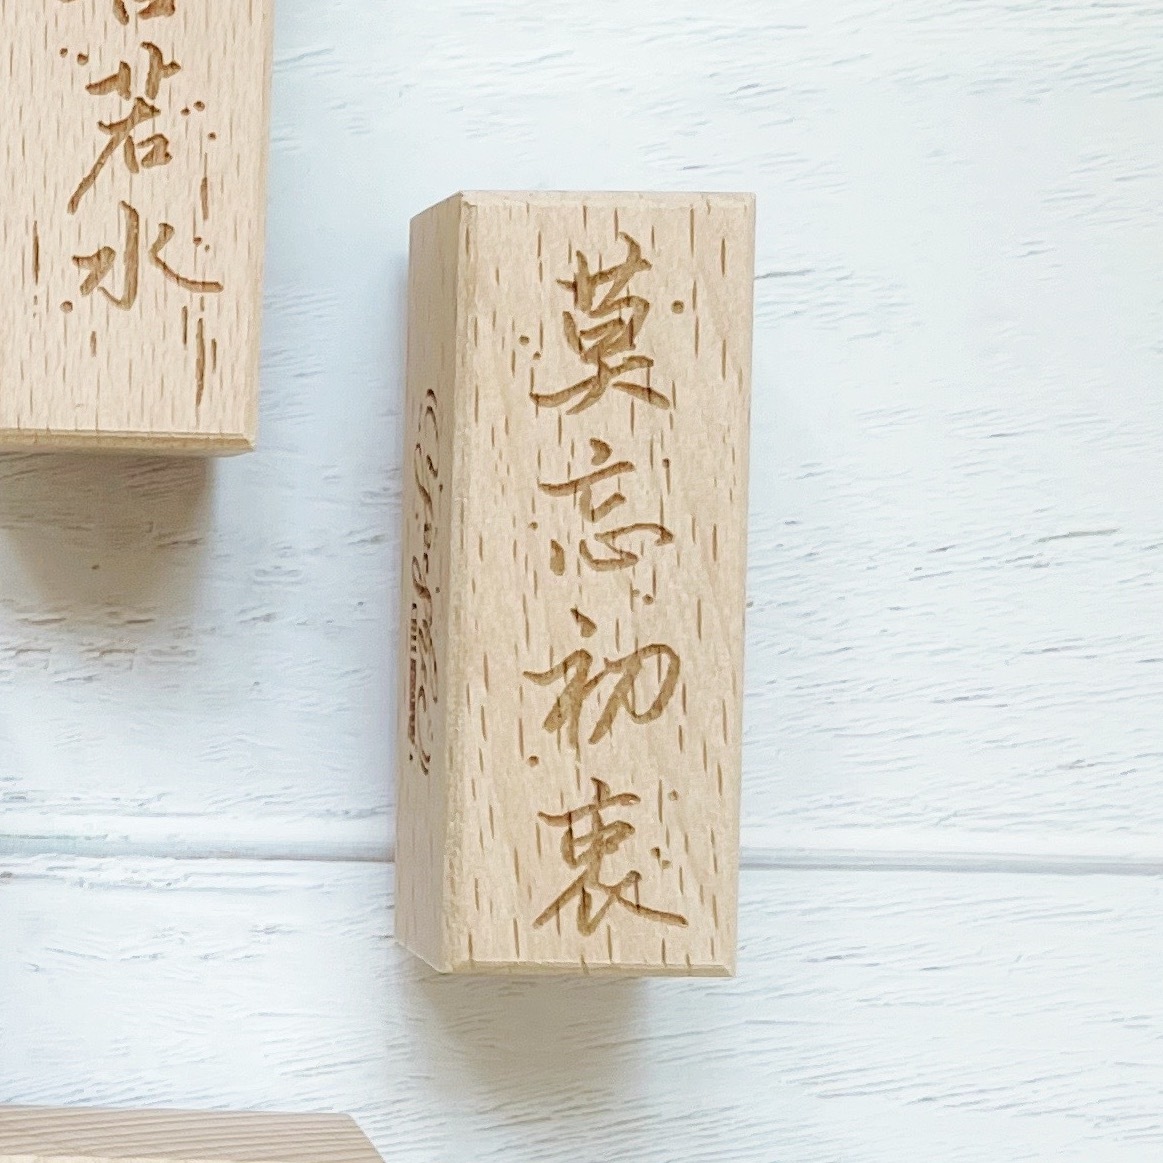 若水
莫忘初衷